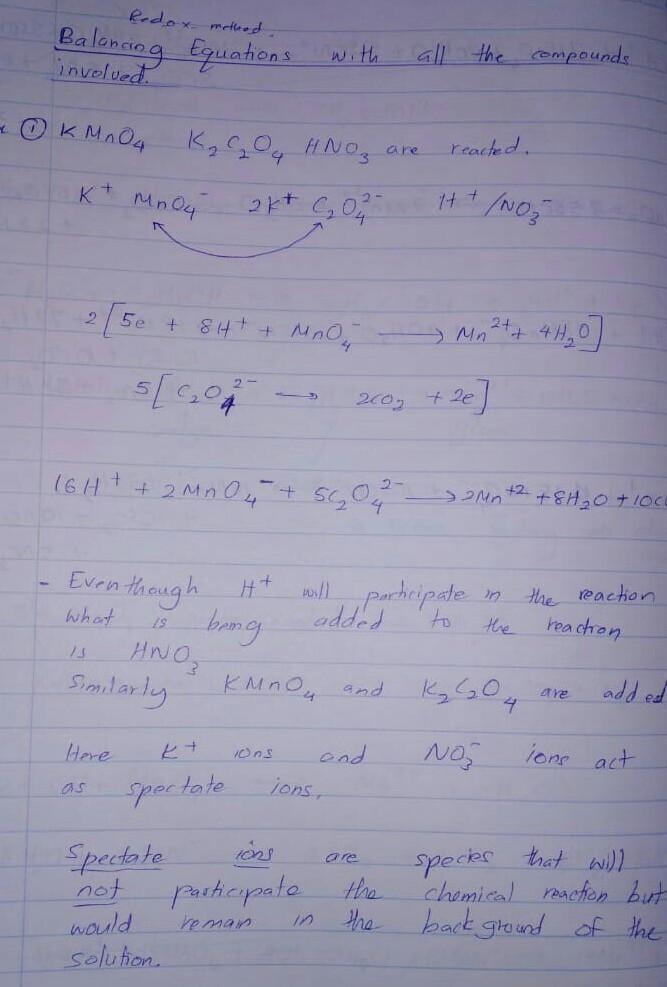 Redox method.
Balancing Equations with all the compounds
involved.
① KMnO₄ K₂C₂O₄ HNO₃ are reacted.
K⁺ MnO₄⁻ 2K⁺ C₂O₄²⁻ H⁺/NO₃⁻
2[5e + 8H⁺ + MnO₄⁻ → Mn²⁺ + 4H₂O]
5[C₂O₄²⁻ → 2CO₂ + 2e]
16H⁺ + 2MnO₄⁻ + 5C₂O₄²⁻ → 2Mn⁺² + 8H₂O + 10C
- Eventhough H⁺ will participate in the reaction
what is being added to the reaction
is HNO₃
Similarly KMnO₄ and K₂C₂O₄ are added
Here K⁺ ions and NO₃⁻ ions act
as spectate ions.
Spectate ions are species that will
not participate the chemical reaction but
would remain in the back ground of the
solution.